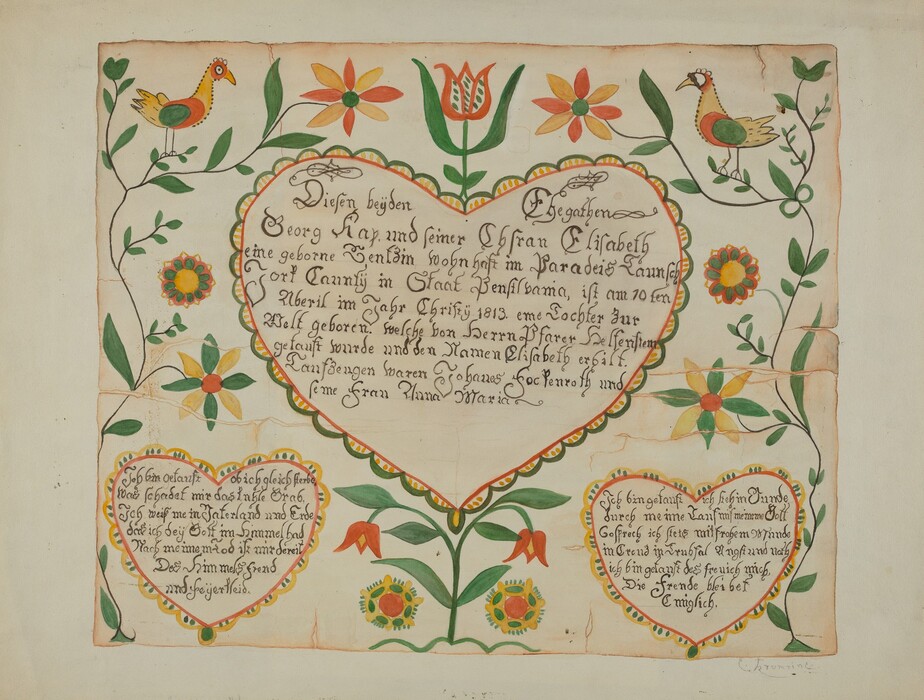 Diesen beyden Ehegathen
Georg Kap. und seiner Ehfran Elisabeth
eine geborne Bentzin wohnhaft im Paradeis Taunsch
York Caunty in Staat Pensilvania, ist am 10 ten
Aberil im Jahr Christy 1813 eine Tochter zur
Welt geboren. welche von Herrn Pfarer Helfenstein
getauft wurde und den Namen Elisabeth erhilt.
Taufzeugen waren Johanes Fockenroth und
seine Frau Anna Maria
Ich bin getauft ob ich gleich sterbe
was schadet mir das kühle Grab.
Ich weiß mein Vaterland und Erbe
das ich bey Gott im Himmel hab
Nach meinem Tod ist mir bereit
Des Himmels Freud
und Feyerkleid.
Ich bin getauft ich steh im Bunde
durch meine Tauf mit meinem Gott
So sprech ich stets mit frohem Munde
in Creud in Trubsal Angst und noth
ich bin getauft des freu ich mich
Die Freude bleibet
Ewiglich.